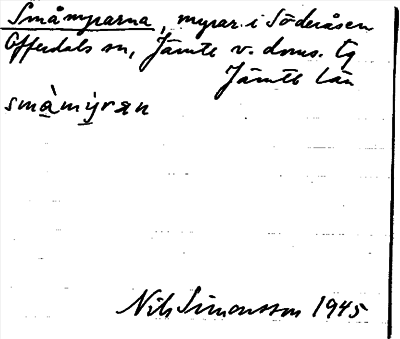 Småmyrarna, myrar i Söderåsen
Offerdals sn, Jämtl v. doms. tg
Jämtl län
småmyran
Nils Simonsson 1945